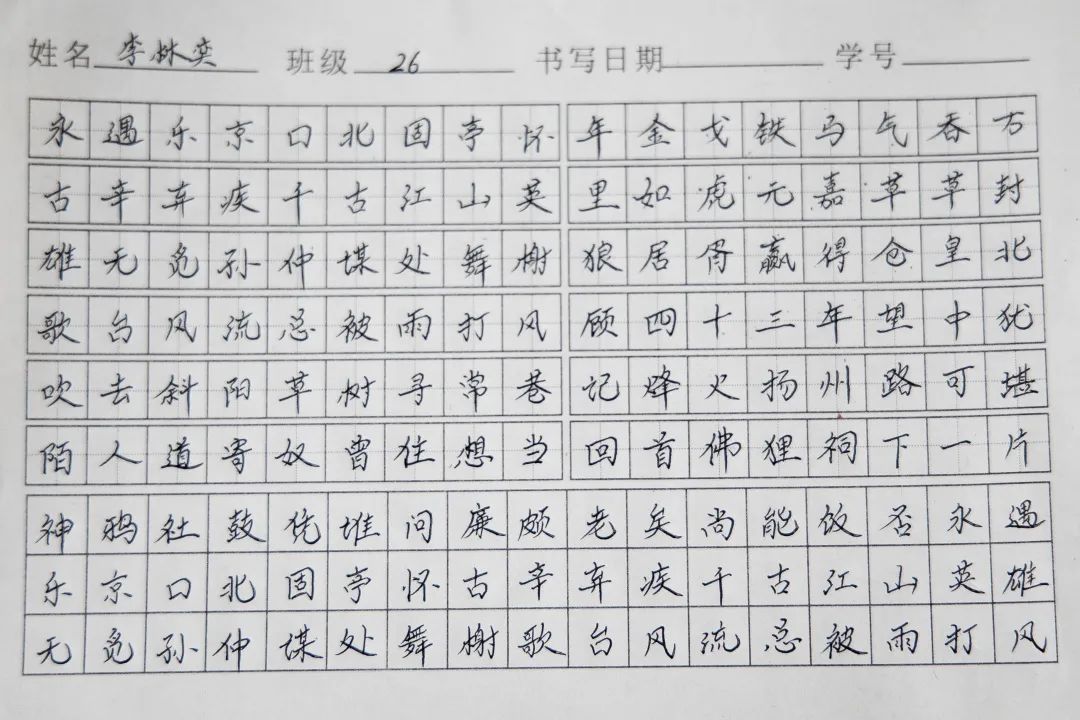 姓名 李林奕 班级 26 书写日期 学号
永遇乐京口北固亭怀
古辛弃疾千古江山英
雄无觅孙仲谋处舞榭
歌台风流总被雨打风
吹去斜阳草树寻常巷
陌人道寄奴曾住想当
年金戈铁马气吞万
里如虎元嘉草草封
狼居胥赢得仓皇北
顾四十三年望中犹
记烽火扬州路可堪
回首佛狸祠下一片
神鸦社鼓凭谁问廉颇老矣尚能饭否永遇
乐京口北固亭怀古辛弃疾千古江山英雄
无觅孙仲谋处舞榭歌台风流总被雨打风